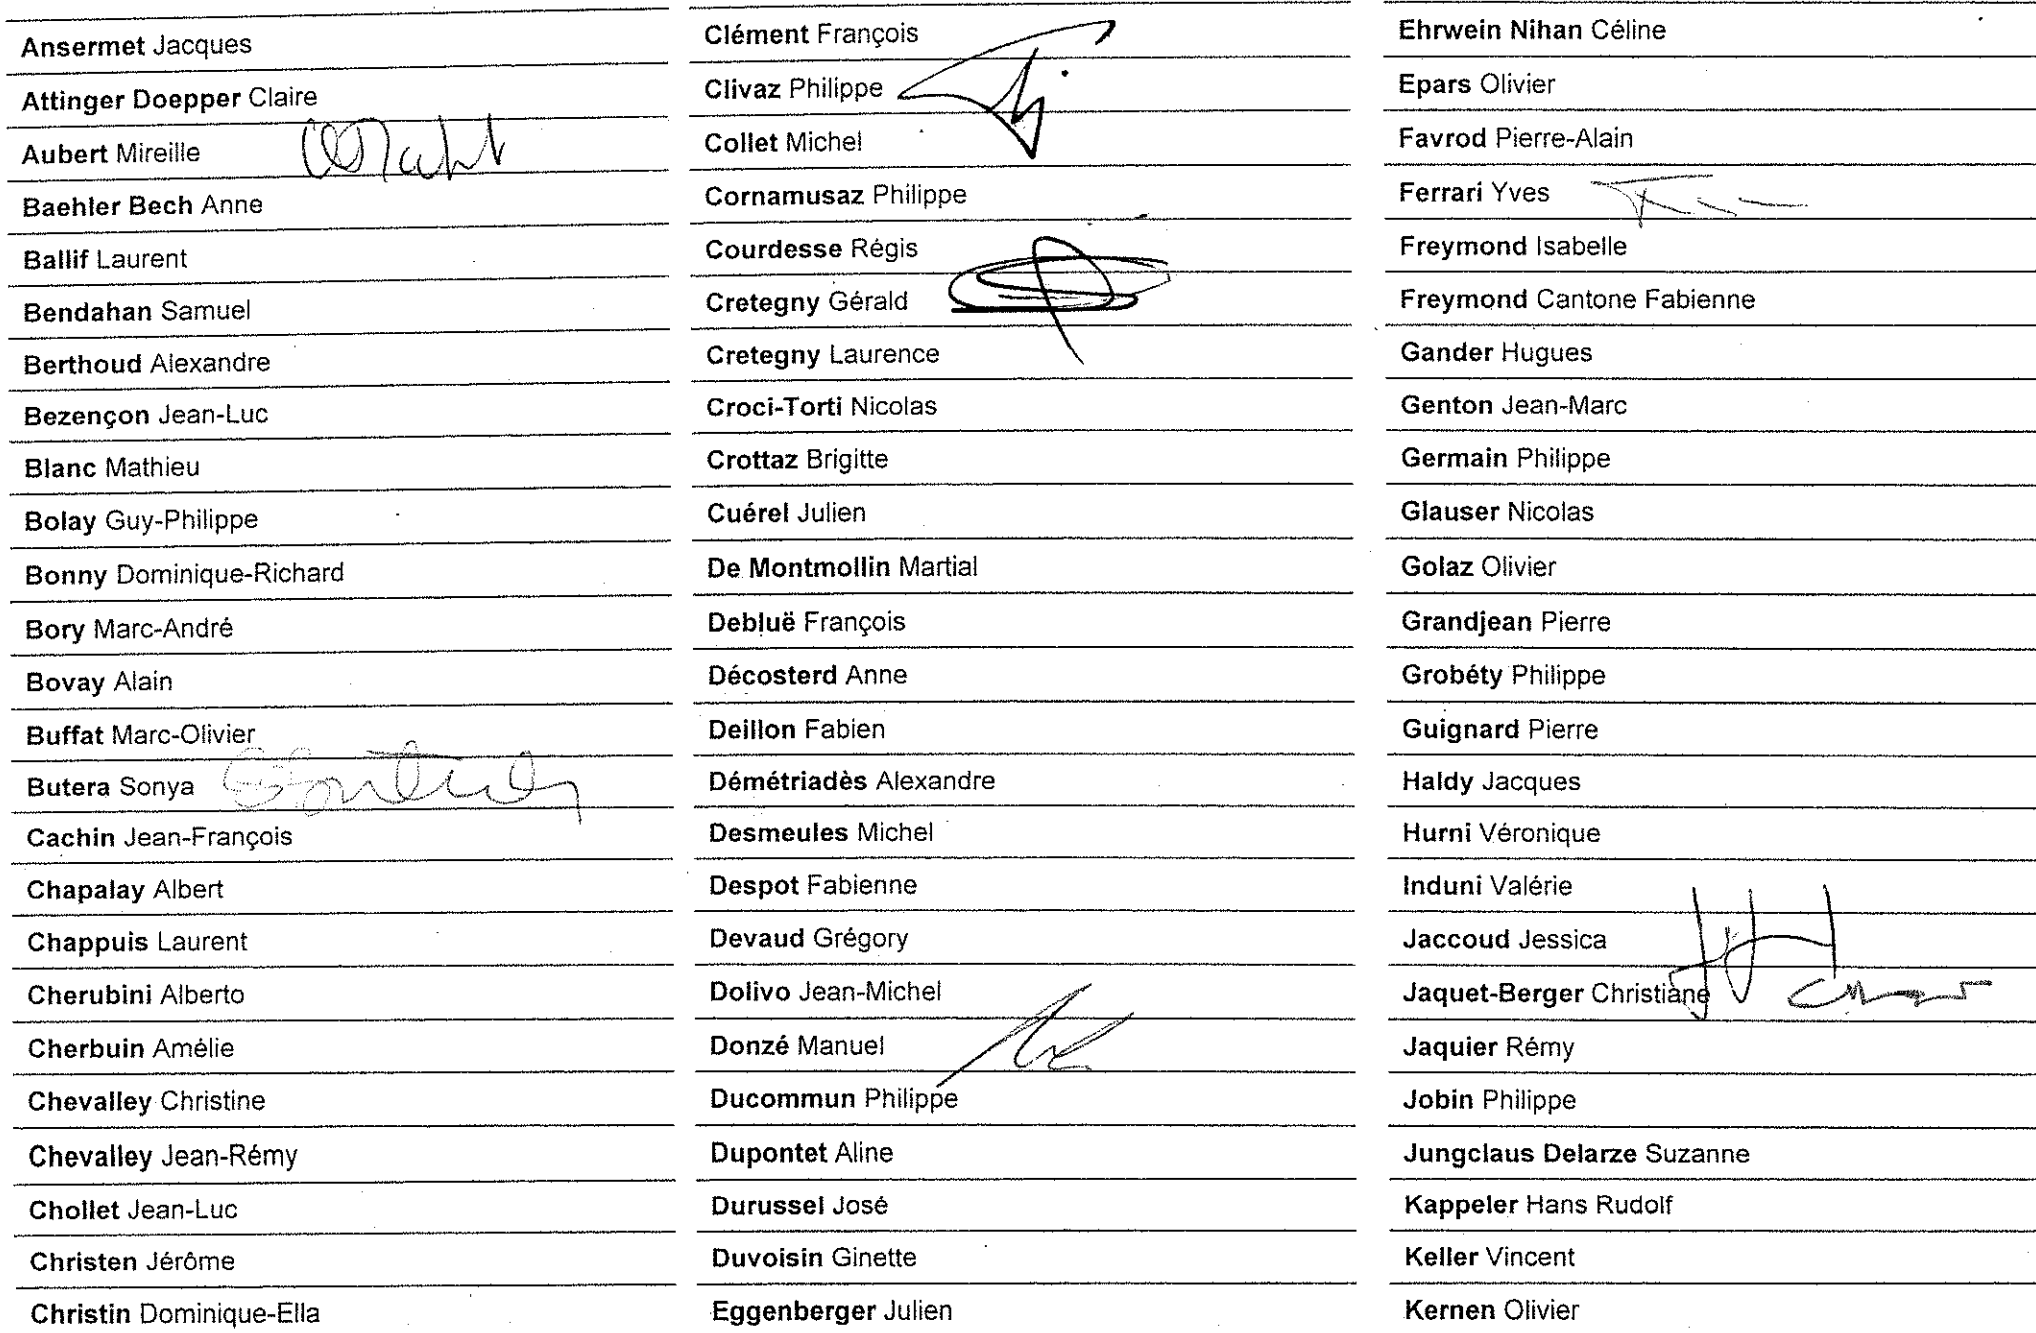 Ansermet Jacques
Attinger Doepper Claire
Aubert Mireille
Baehler Bech Anne
Ballif Laurent
Bendahan Samuel
Berthoud Alexandre
Bezençon Jean-Luc
Blanc Mathieu
Bolay Guy-Philippe
Bonny Dominique-Richard
Bory Marc-André
Bovay Alain
Buffat Marc-Olivier
Butera Sonya
Cachin Jean-François
Chapalay Albert
Chappuis Laurent
Cherubini Alberto
Cherbuin Amélie
Chevalley Christine
Chevalley Jean-Rémy
Chollet Jean-Luc
Christen Jérôme
Christin Dominique-Ella
Clément François
Clivaz Philippe
Collet Michel
Cornamusaz Philippe
Courdesse Régis
Cretegny Gérald
Cretegny Laurence
Croci-Torti Nicolas
Crottaz Brigitte
Cuérel Julien
De Montmollin Martial
Debluë François
Décosterd Anne
Deillon Fabien
Démétriadès Alexandre
Desmeules Michel
Despot Fabienne
Devaud Grégory
Dolivo Jean-Michel
Donzé Manuel
Ducommun Philippe
Dupontet Aline
Durussel José
Duvoisin Ginette
Eggenberger Julien
Ehrwein Nihan Céline
Epars Olivier
Favrod Pierre-Alain
Ferrari Yves
Freymond Isabelle
Freymond Cantone Fabienne
Gander Hugues
Genton Jean-Marc
Germain Philippe
Glauser Nicolas
Golaz Olivier
Grandjean Pierre
Grobéty Philippe
Guignard Pierre
Haldy Jacques
Hurni Véronique
Induni Valérie
Jaccoud Jessica
Jaquet-Berger Christiane
Jaquier Rémy
Jobin Philippe
Jungclaus Delarze Suzanne
Kappeler Hans Rudolf
Keller Vincent
Kernen Olivier